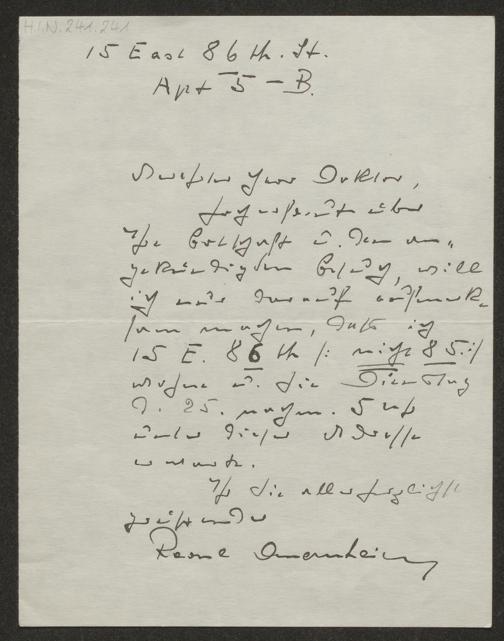 H.I.N. 241.241
15 East 86 th. St.
Apt 5 - B.
Herr Doktor,
hocherfreut über
Ihre Botschaft u. den an-
gekündigten Besuch, will
ich nur darauf aufmerk-
sam machen, daß ich
15 E. 86 th /: nicht 85 :/
wohne u. Sie Dienstag
d. 25. nachm. 5 Uhr
unter dieser Adresse
erwarte.
Ihr Sie allerherzlichst
grüßender
Raoul Auernheimer